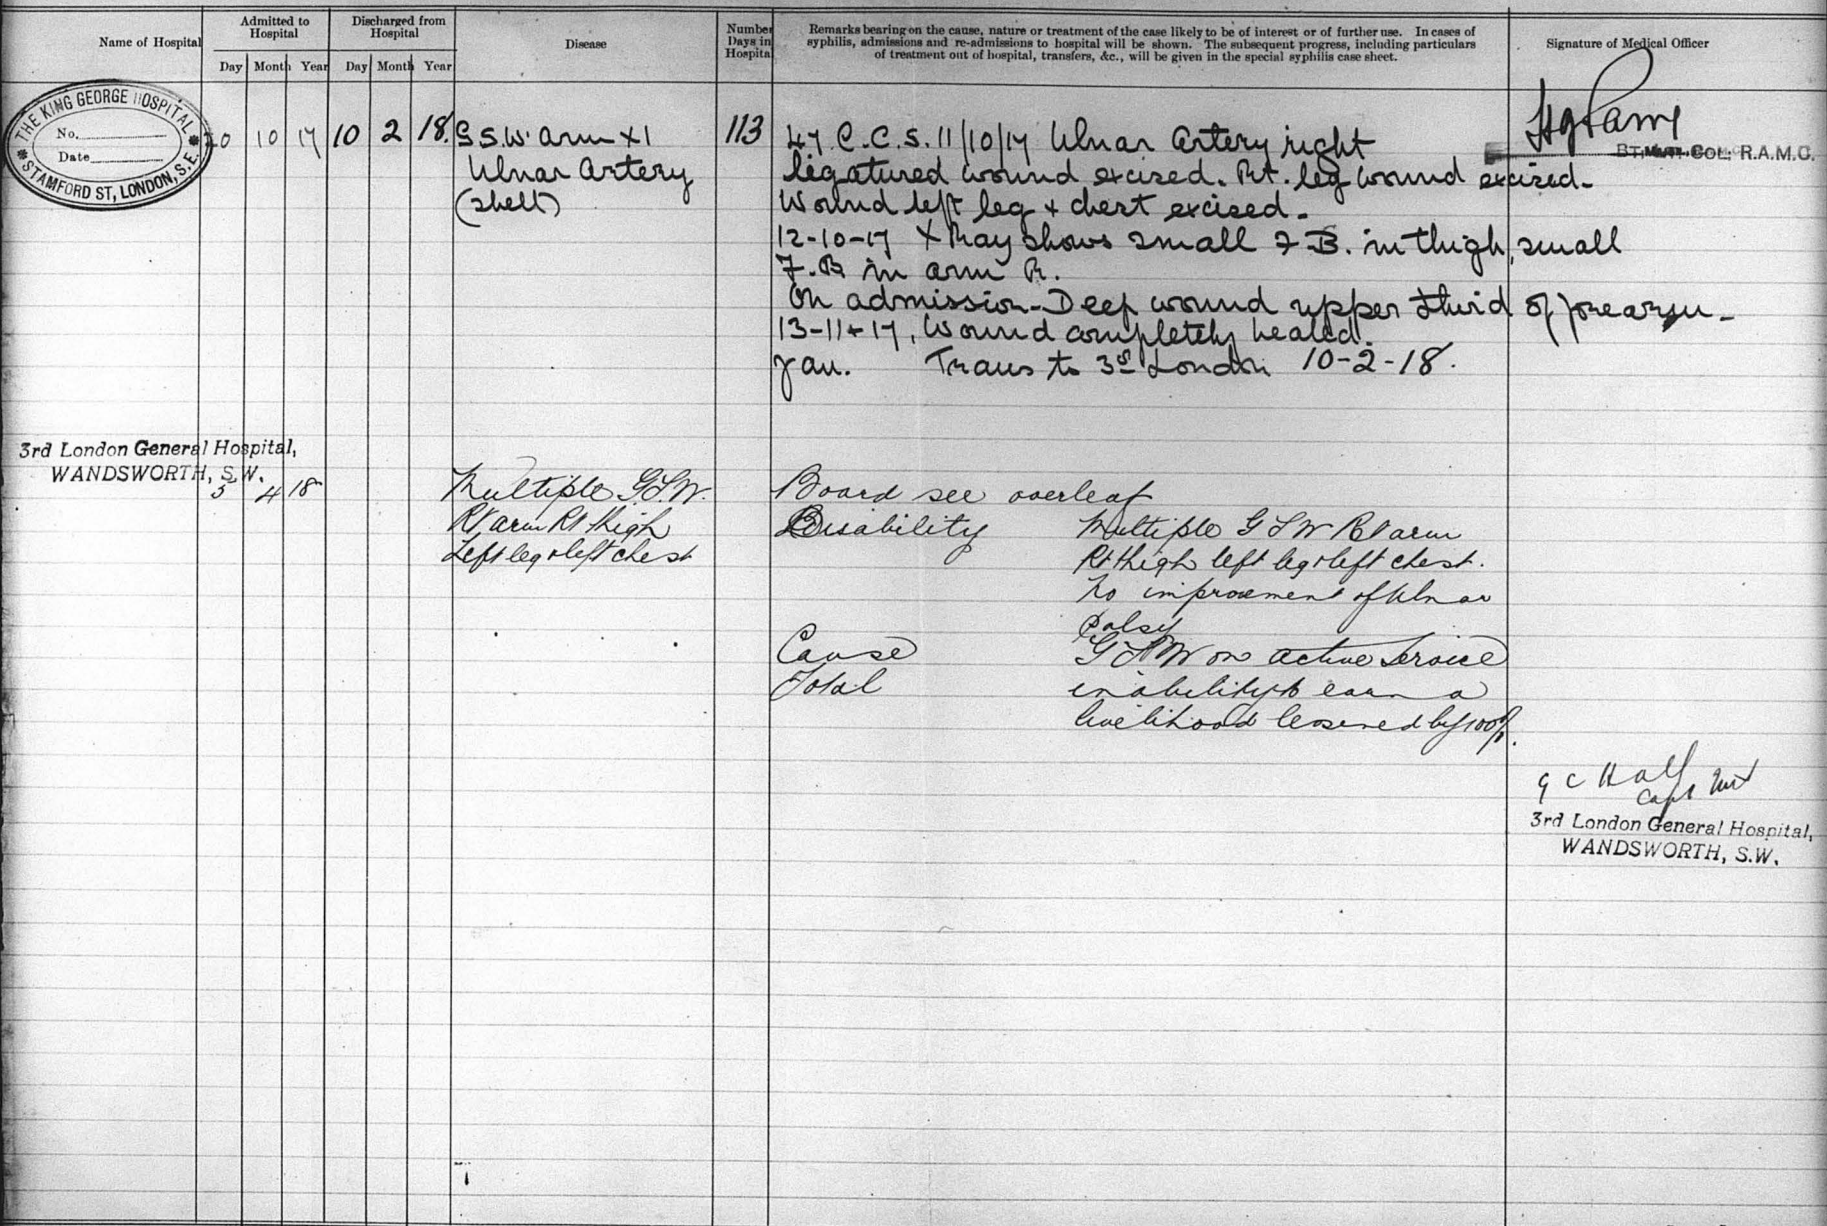 Name of Hospital
Admitted to Hospital
Discharged from Hospital
Disease
Number Days in Hospital
Remarks bearing on the cause, nature or treatment of the case likely to be of interest or of further use. In cases of
syphilis, admissions and re-admissions to hospital will be shown. The subsequent progress, including particulars
of treatment out of hospital, transfers, &c., will be given in the special syphilis case sheet.
Signature of Medical Officer
Day Month Year Day Month Year
THE KING GEORGE HOSPITAL
No.
Date
STAMFORD ST, LONDON, S.E.
20 10 17 10 2 18. G.S.W. arm x 1 113 47 C.C.S. 11/10/17 Ulnar Artery right
Ulnar Artery ligatured wound excised. Rt. leg wound excised.
(shell) Wound left leg + chest excised.
12-10-17 X Ray shows small F B. in thigh, small
F.B in arm R.
On admission - Deep wound upper third of forearm -
13-11-17. Wound completely healed.
Jan. Trans to 3rd London 10-2-18.
Col. R.A.M.C.
3rd London General Hospital,
WANDSWORTH, S.W.
5 4 18 Multiple G.S.W. Board see overleaf
Rt arm Rt thigh Disability Multiple G S W Rt arm
Left leg & left chest Rt thigh left leg & left chest.
No improvement of Ulnar
Palsy
Cause G S W on active Service
Total inability to earn a
livelihood lessened by 100%.
G C Hall
Capt
3rd London General Hospital,
WANDSWORTH, S.W.